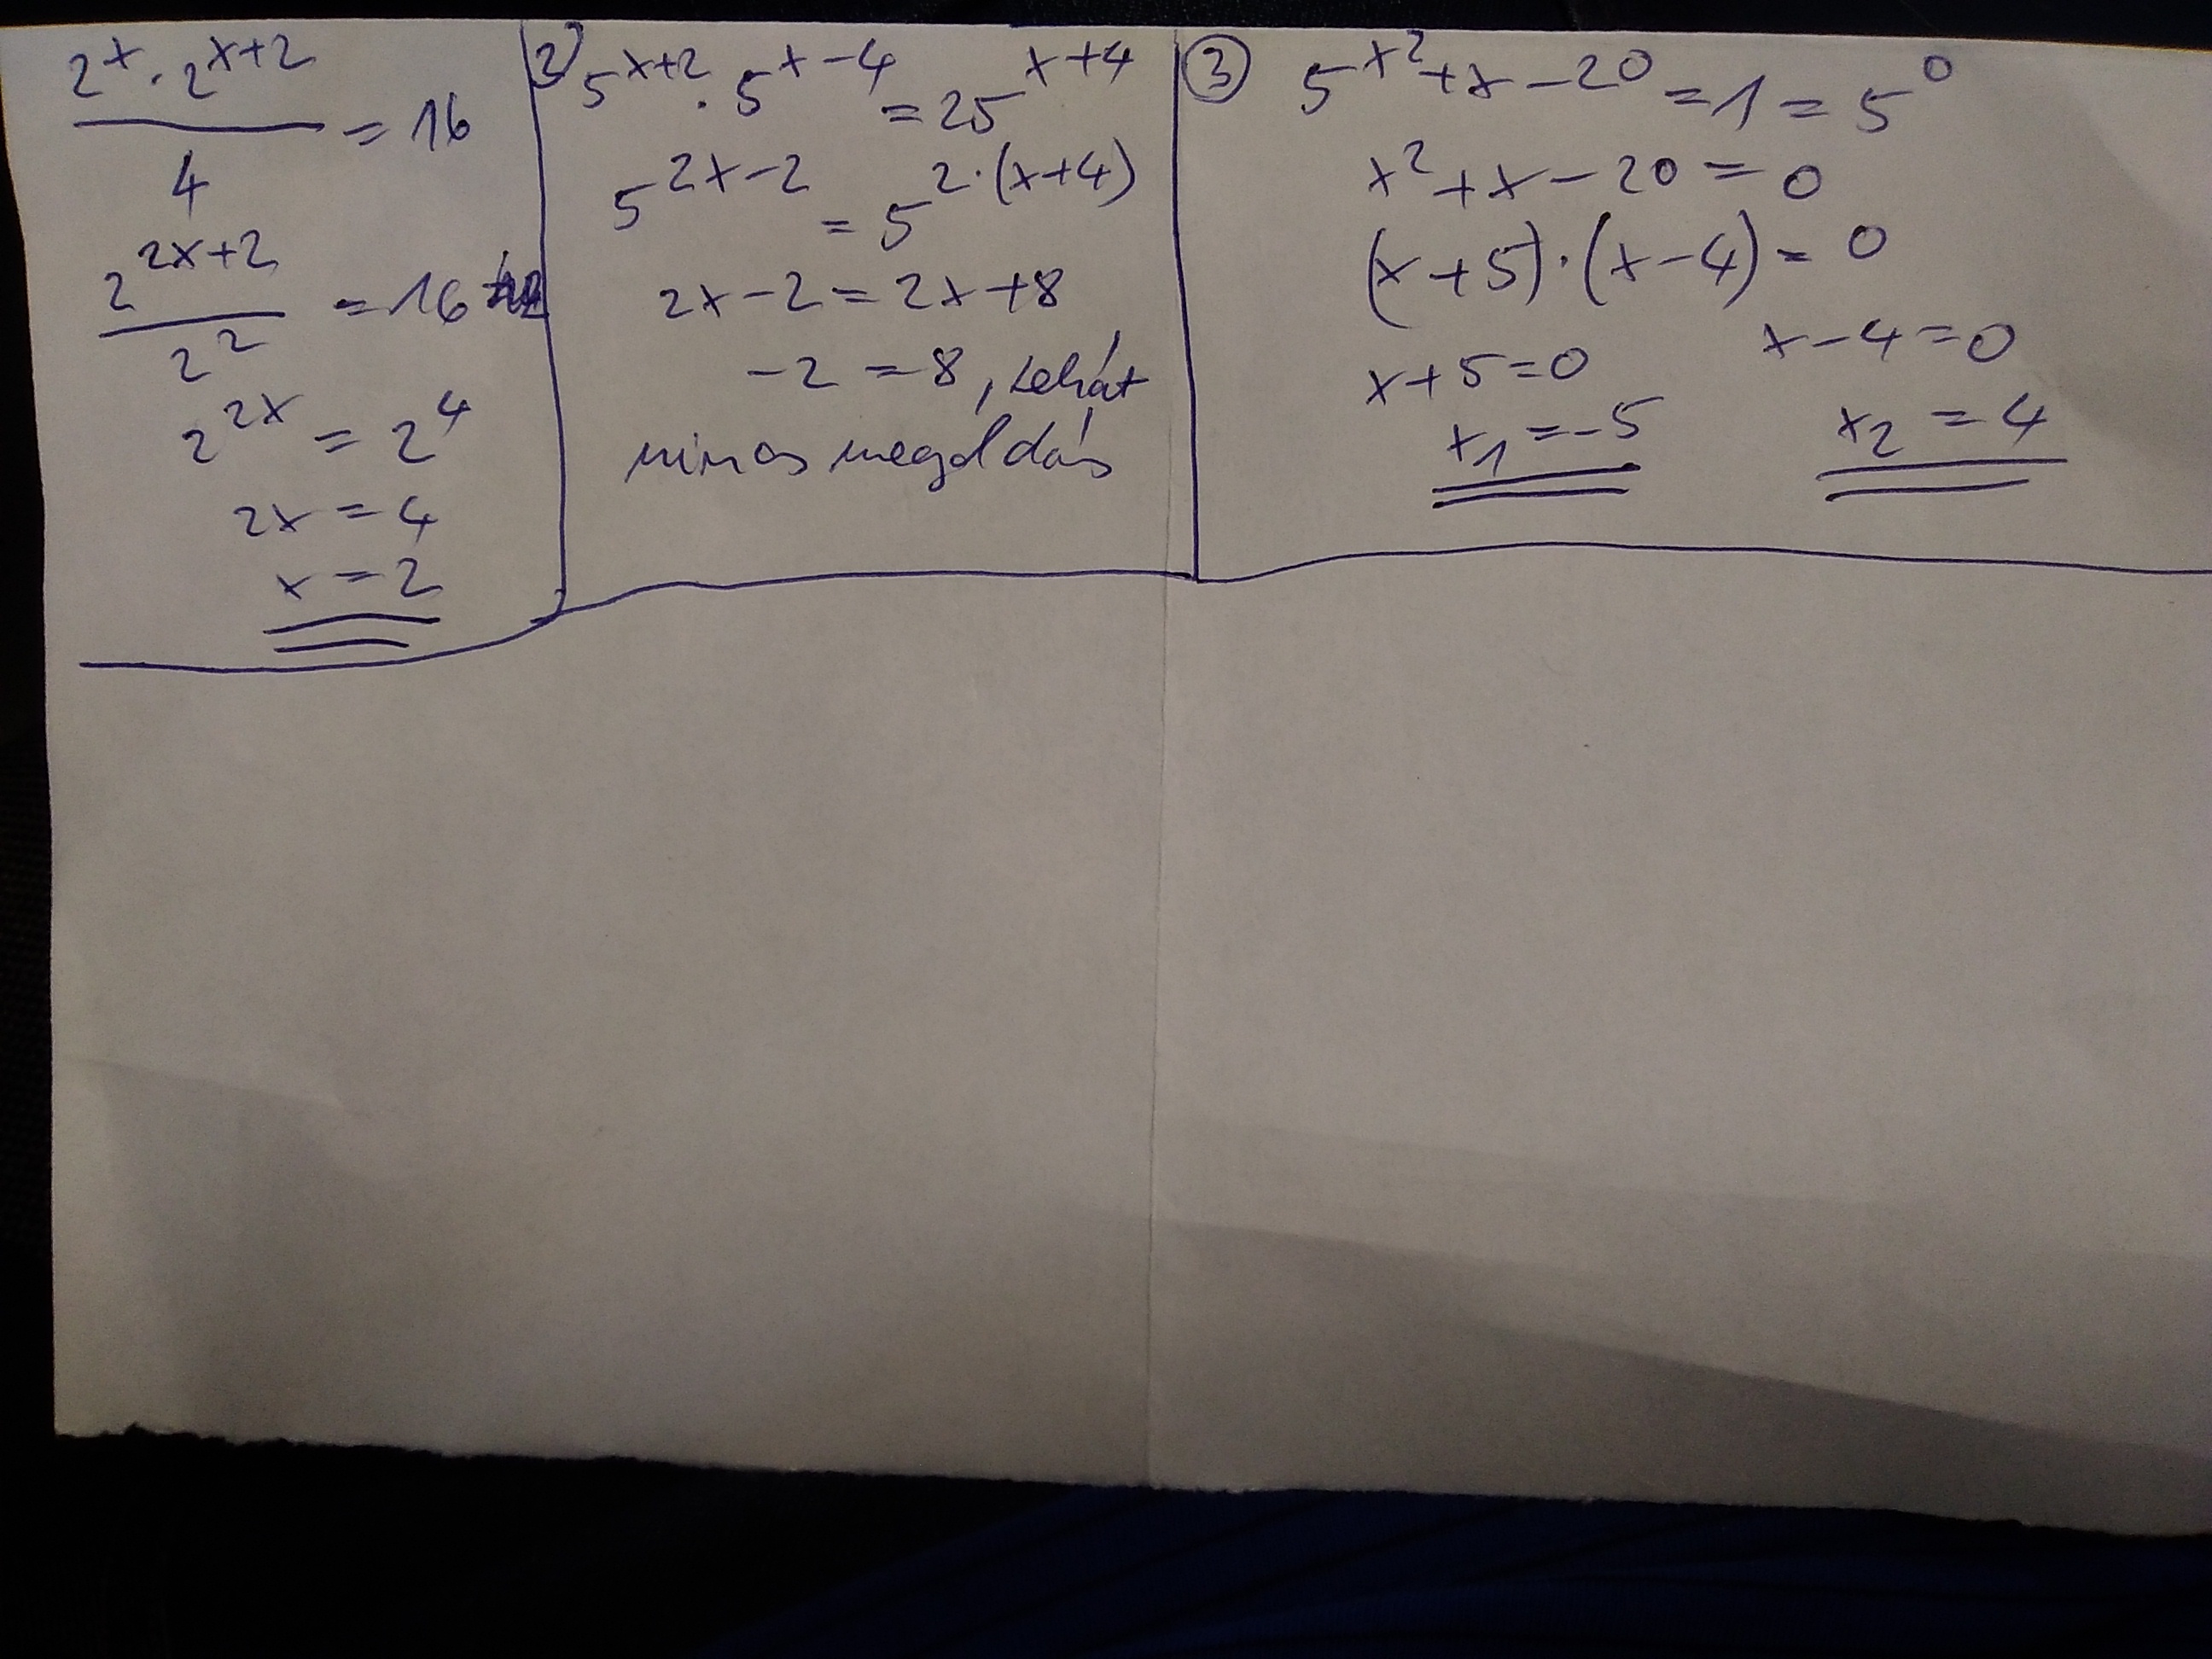 2^x · 2^(x+2) / 4 = 16
2^(2x+2) / 2^2 = 16
2^(2x) = 2^4
2x = 4
x = 2
2) 5^(x+2) · 5^(x-4) = 25^(x+4)
5^(2x-2) = 5^(2·(x+4))
2x - 2 = 2x + 8
-2 = 8, tehát
nincs megoldás
③ 5^(x^2+x-20) = 1 = 5^0
x^2 + x - 20 = 0
(x+5)·(x-4) = 0
x+5=0 x-4=0
x_1 = -5 x_2 = 4